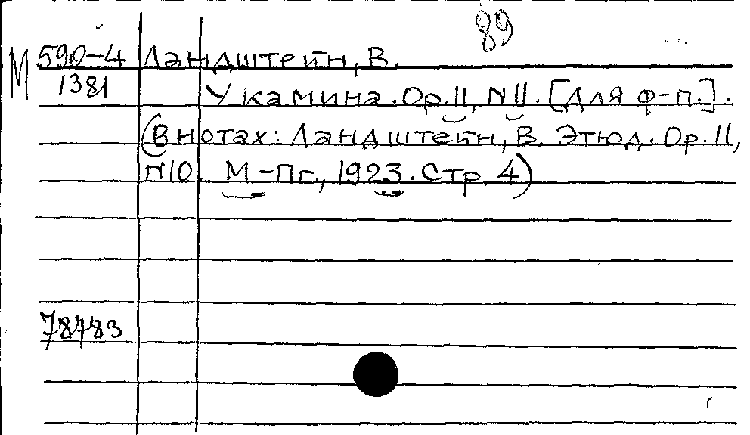 89
М 590-4 Ландштейн, В.
1381 У камина. Ор. 11, N 11. [Для ф-п.].
(В нотах: Ландштейн, В. Этюд. Ор. 11,
N 10. М.-Пг., 1923. Стр. 4)
78783